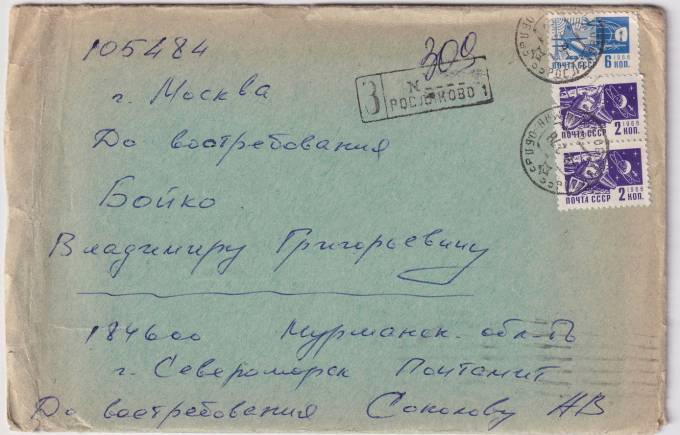 105484
г. Москва
До востребования
Бойко
Владимиру Григорьевичу
184600 Мурманск. обл-ть
г. Североморск Почтамт
До востребования Соколову АВ
309
З
N
РОСЛЯКОВО 1
1966
ПОЧТА СССР 6 КОП.
1966
ПОЧТА СССР 2 КОП.
1966
ПОЧТА СССР 2 КОП.